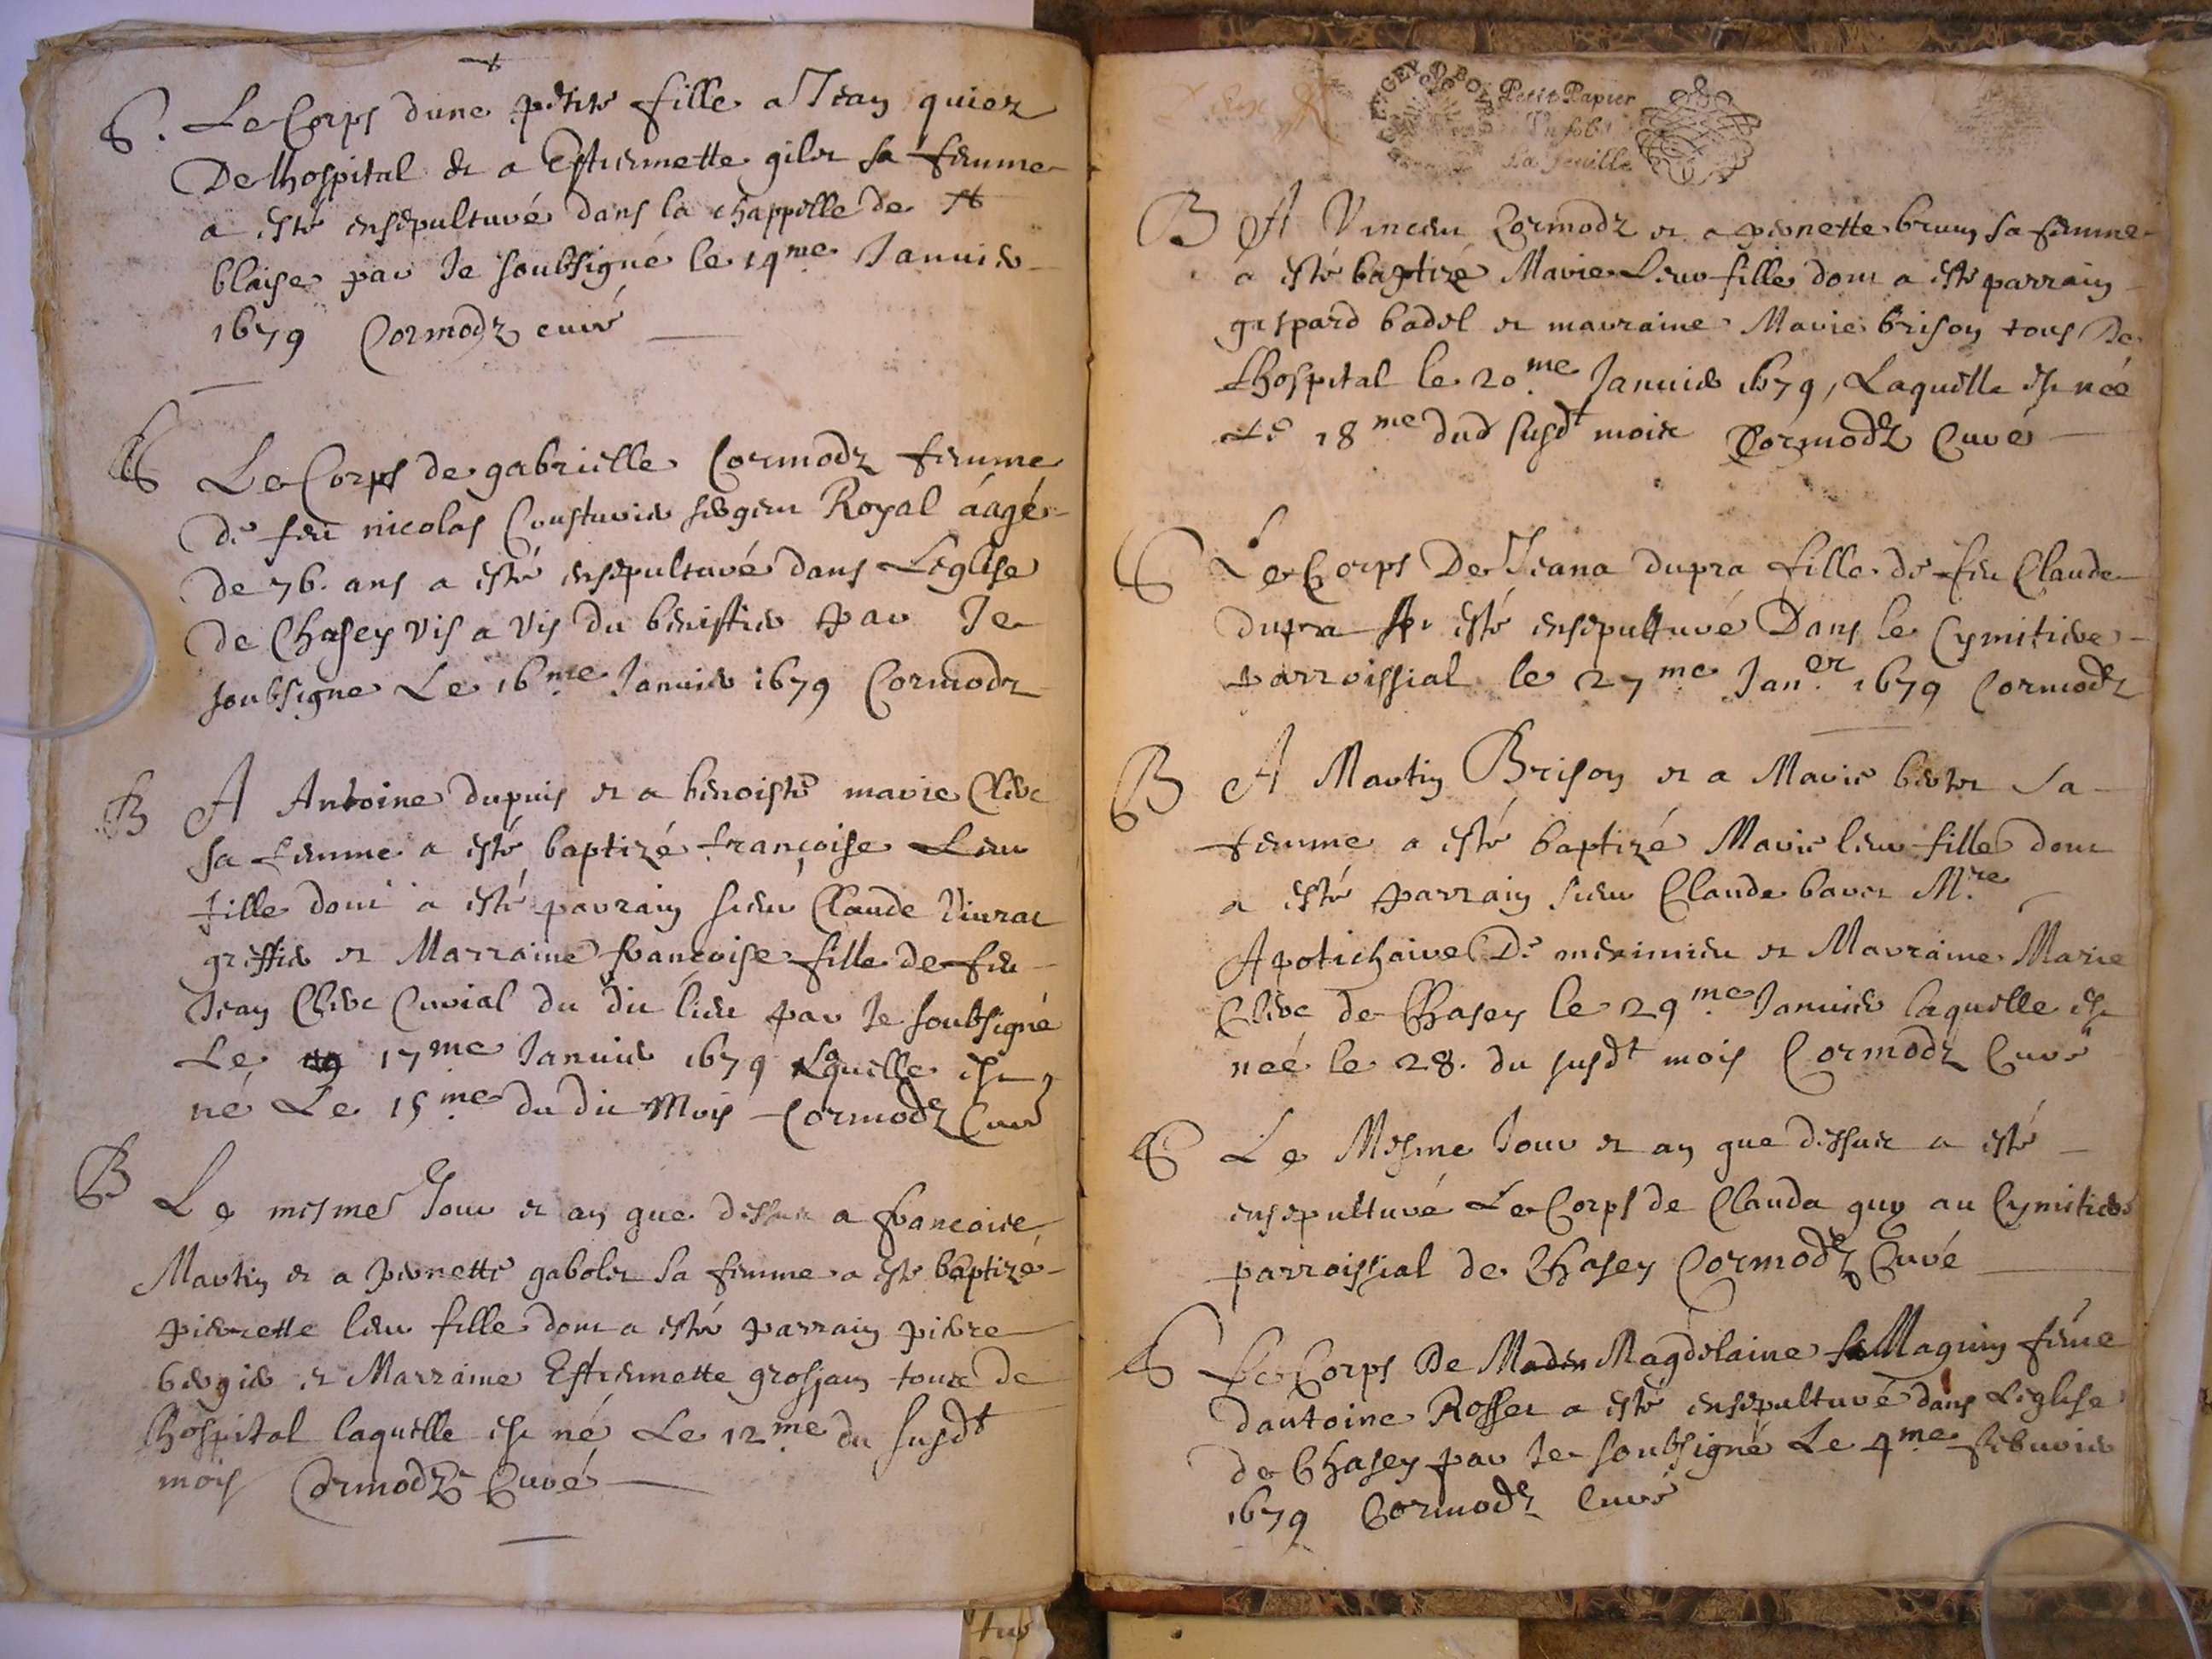 S. Le Corps dune petite fille a Jean quioz
De lhospital et a Estiennette gilet sa femme
a esté ensepulturé dans la chappelle de St
blaise par Je soubsigné le 14me Januier
1679 Cormodz curé
S Le Corps de gabrielle Cormodz femme
de feu nicolas Cousturier sergent Royal áagé
de 76. ans a esté ensepulturé dans Leglise
de Chasey vis a vis du benistier par Je
soubsigne Le 16me Januier 1679 Cormodz
B A Antoine dupuis et a benoiste marie Clerc
sa femme a esté baptizé françoise Leur
fille dont a esté parrain sieur Claude
greffier et Marraine francoise fille de feu
Jean Clerc Curial du dit lieu par Je soubsigné
Le 17me Januier 1679 Laquelle est
né Le 15me du dit Mois Cormodz Curé
B Le mesme Jour et an que dessus a francoise
Martin et a pernette gabolet sa femme a esté baptizé
pierrette leur fille dont a esté parrain pierre
bergier et Marraine Estiennette grosjean tous de
lhospital laquelle est né Le 12me du susdt
mois Cormodz Curé
Petit Papier
La feuille
B A Vincent Cormodz et a pernette brun sa femme
a esté baptizé Marie Leur fille dont a esté parrain
gaspard badel et marraine Marie brison tous De
Lhospital le 20me Januier 1679, Laquelle est née
Le 18me dud susdt mois Cormodz Curé
S Le Corps De Jeana dupra fille de feu Claude
dupra a esté ensepulturé Dans le Cymitiere
parroissial le 27me Jan.er 1679 Cormodz
B A Martin Brison et a Marie bertet sa
femme a esté baptizé Marie leur fille dont
a esté parrain sieur Claude bavet M.re
Apotichaire De meximieu et Marraine Marie
Clerc de Chasey le 29me Januier laquelle est
née le 28. du susdt mois Cormodz Curé
S Le Mesme Jour et an que dessus a esté
ensepulturé Le Corps de Clauda guy au Cymitiere
parroissial de Chasey Cormodz Curé
S Le Corps De Magdelaine Magnin feme
dantoine Rosset a esté ensepulturé dans Leglise
de Chasey par Je soubsigné Le 4me feburier
1679 Cormodz Curé